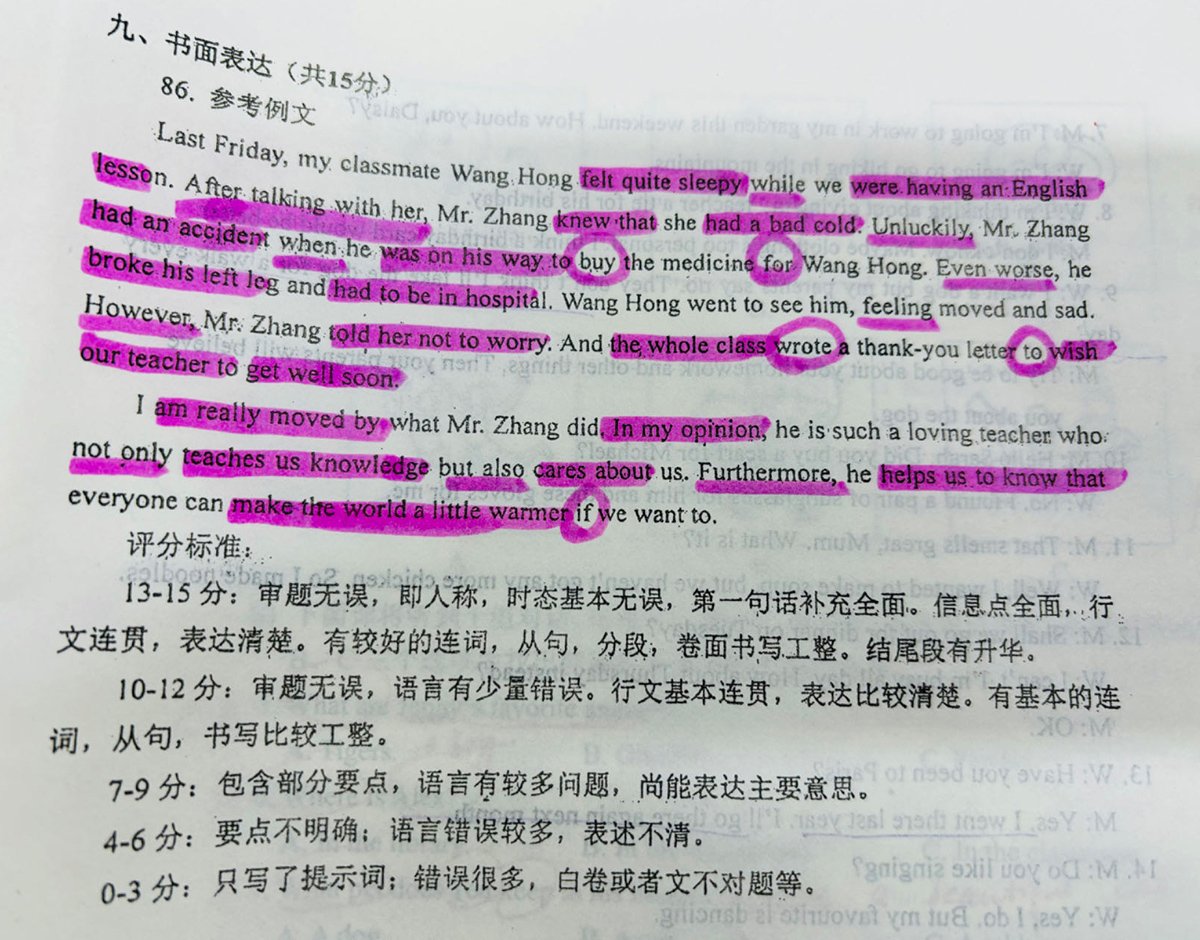 九、书面表达（共15分）
86. 参考例文
Last Friday, my classmate Wang Hong felt quite sleepy while we were having an English
lesson. After talking with her, Mr. Zhang knew that she had a bad cold. Unluckily, Mr. Zhang
had an accident when he was on his way to buy the medicine for Wang Hong. Even worse, he
broke his left leg and had to be in hospital. Wang Hong went to see him, feeling moved and sad.
However, Mr. Zhang told her not to worry. And the whole class wrote a thank-you letter to wish
our teacher to get well soon.
I am really moved by what Mr. Zhang did. In my opinion, he is such a loving teacher who
not only teaches us knowledge but also cares about us. Furthermore, he helps us to know that
everyone can make the world a little warmer if we want to.
评分标准：
13-15 分：审题无误，即人称，时态基本无误，第一句话补充全面。信息点全面，行
文连贯，表达清楚。有较好的连词，从句，分段，卷面书写工整。结尾段有升华。
10-12 分：审题无误，语言有少量错误。行文基本连贯，表达比较清楚。有基本的连
词，从句，书写比较工整。
7-9 分：包含部分要点，语言有较多问题，尚能表达主要意思。
4-6 分：要点不明确；语言错误较多，表述不清。
0-3 分：只写了提示词；错误很多，白卷或者文不对题等。